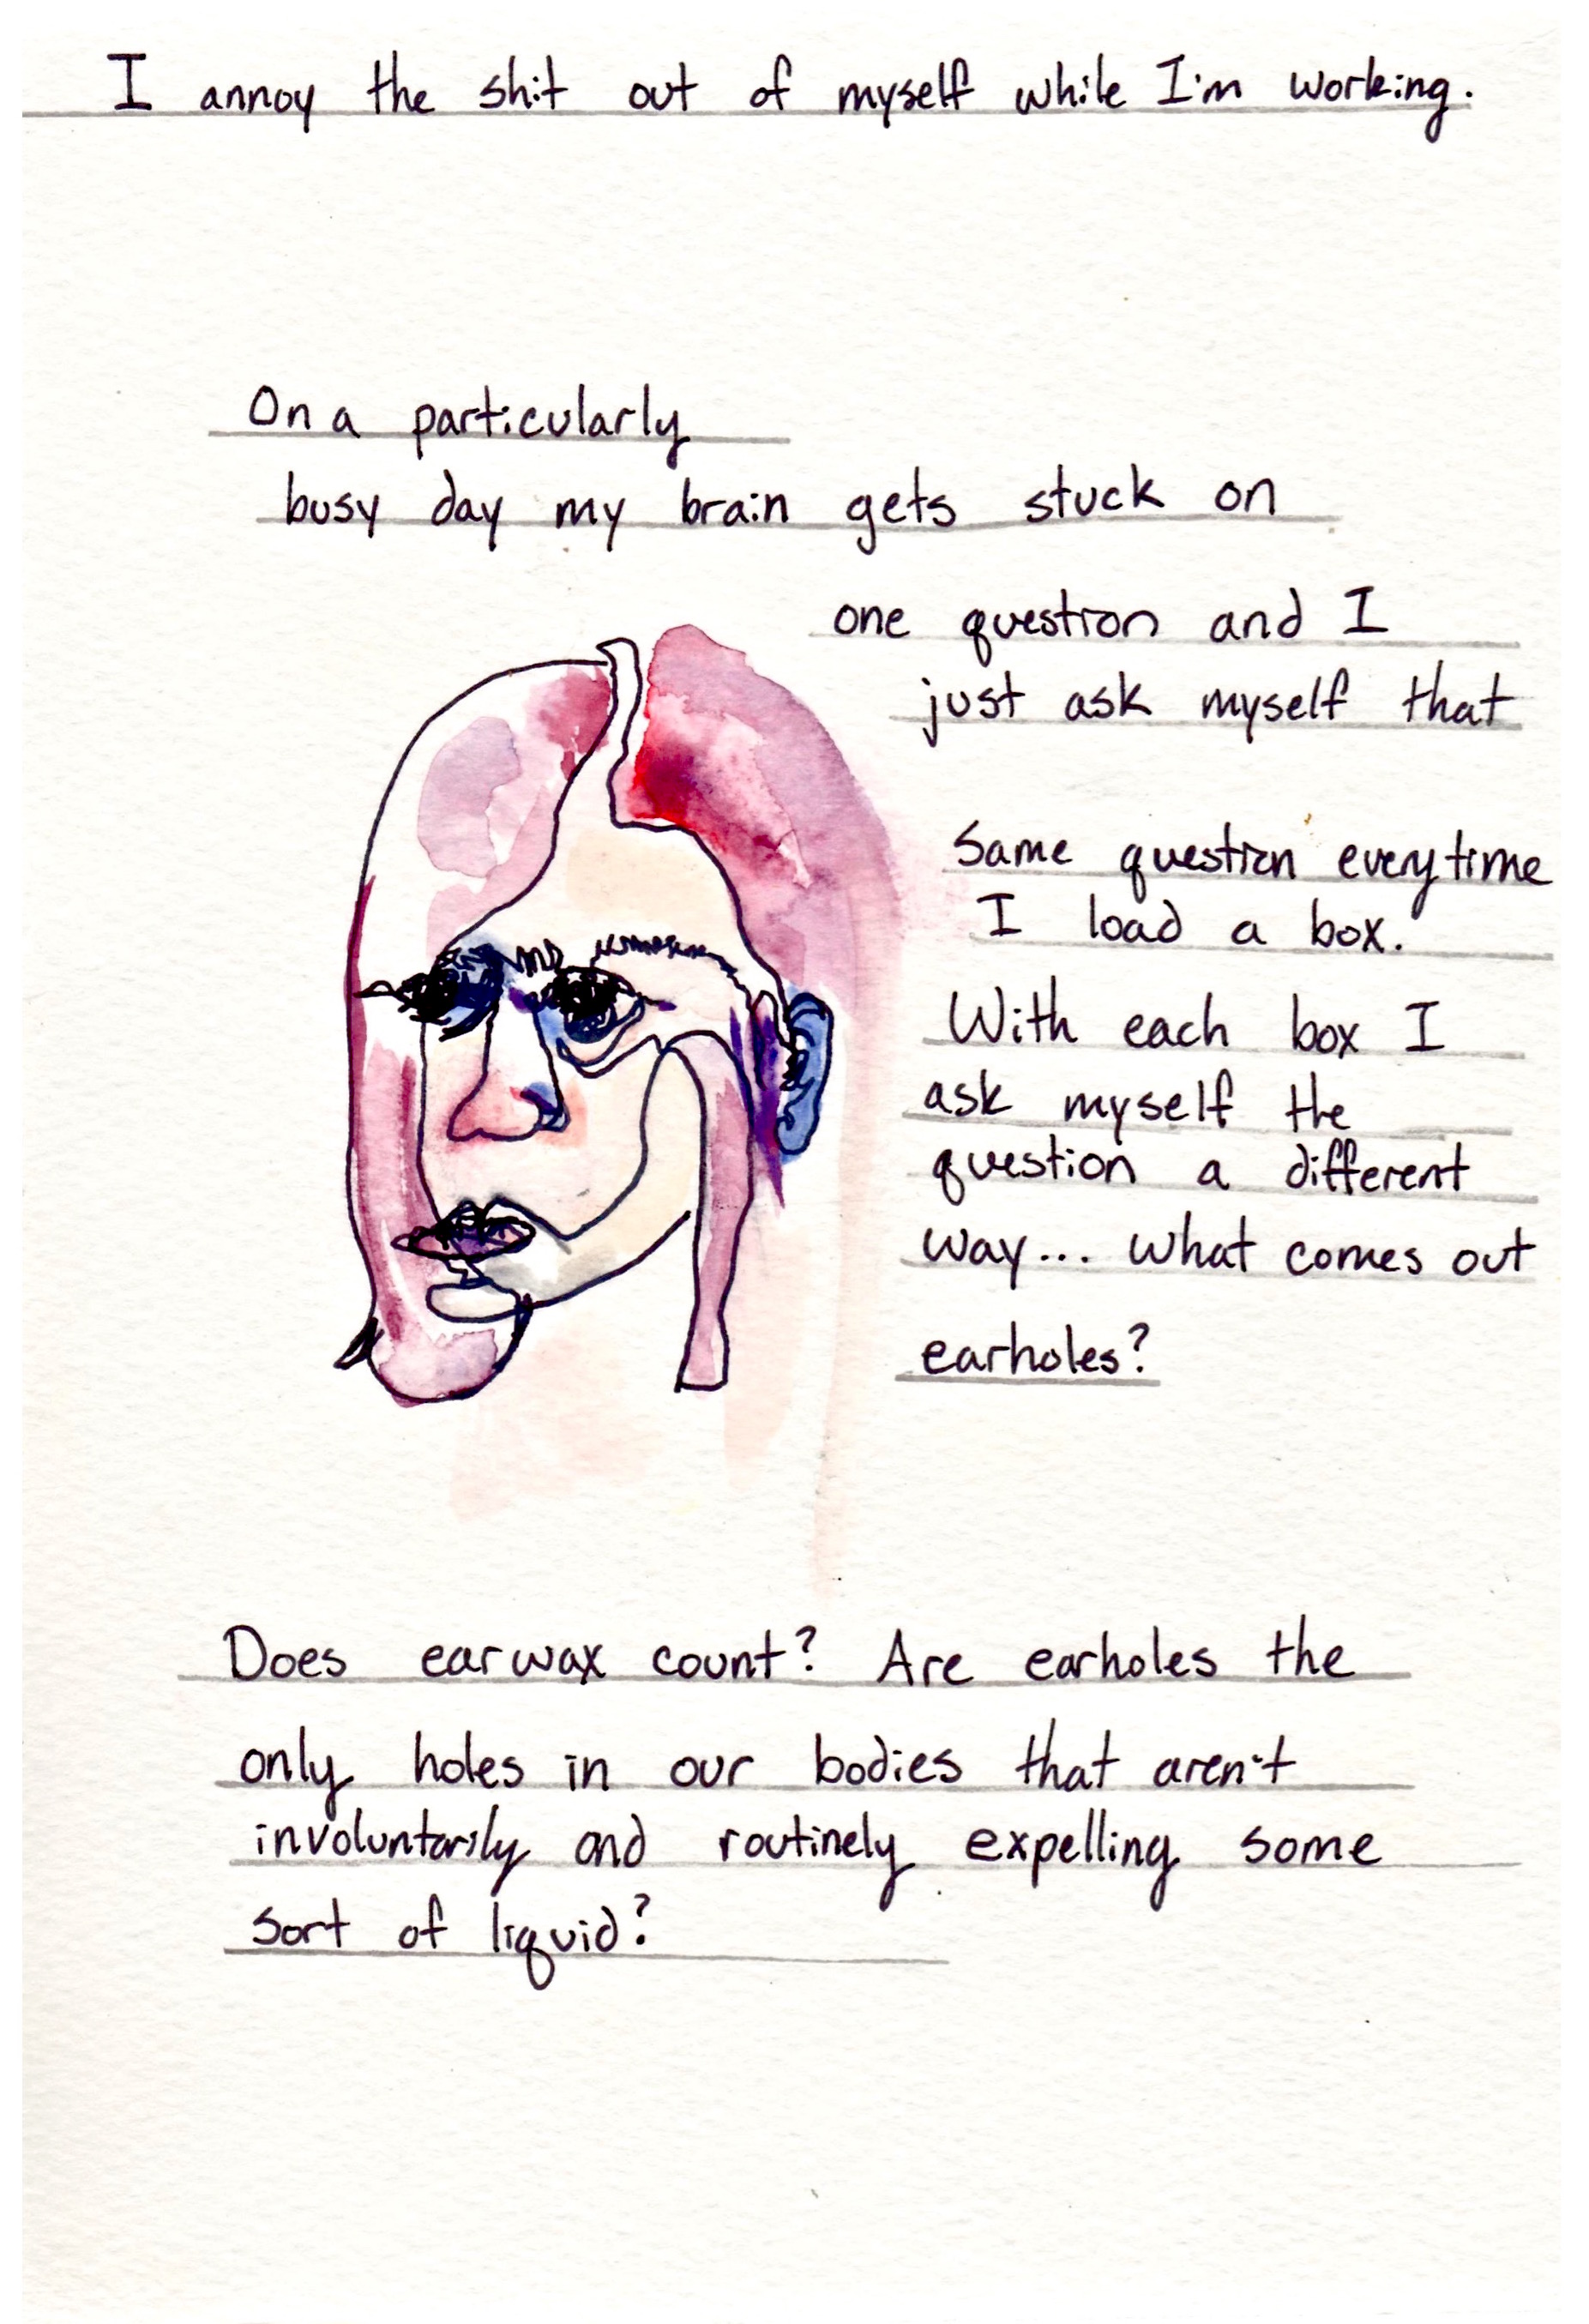 I annoy the shit out of myself while I'm working.
On a particularly
busy day my brain gets stuck on
one question and I
just ask myself that
Same question everytime
I load a box.
With each box I
ask myself the
question a different
way... What comes out
earholes?
Does earwax count? Are earholes the
only holes in our bodies that aren't
involuntarily and routinely expelling some
sort of liquid?